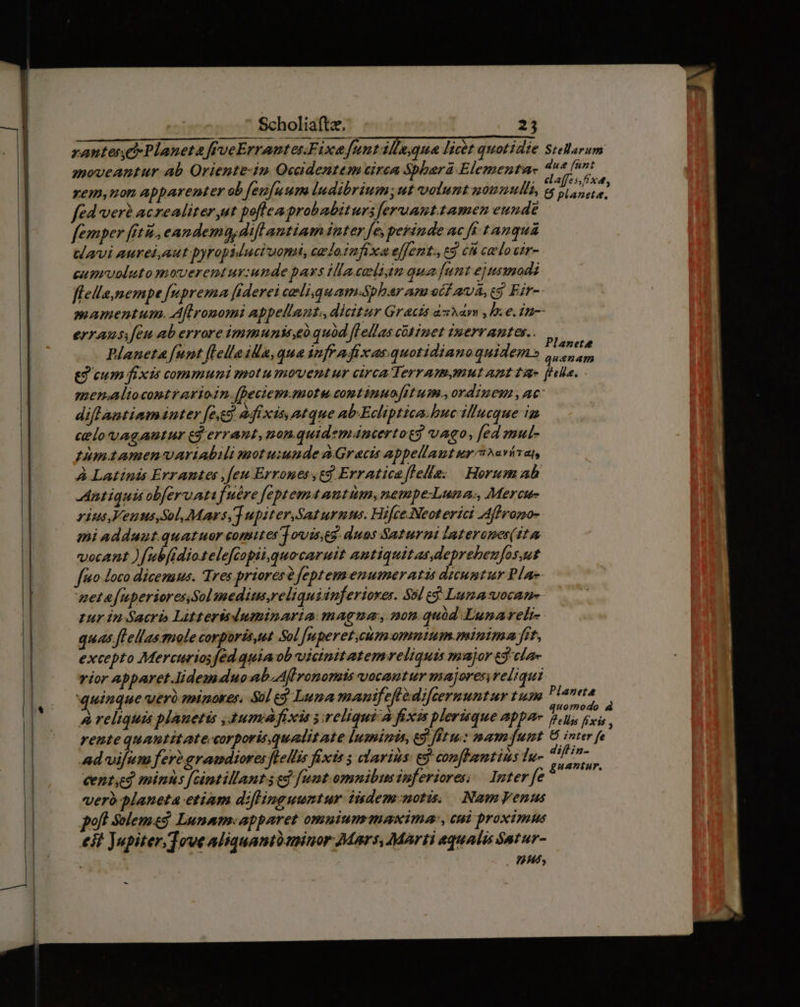 Scholiaſtæ. 23
rantes, & Planeta ſive Errantes. Fixæ ſunt illæ, quæ licèt quotidie
moveantur ab Oriente in Occidentem circa Sphærā Elementa-
rem, non apparenter ob ſenſuum ludibrium, ut volunt nonnulli,
ſed verè ac realiter, ut poſtea probabitur; ſervant tamen eundē
ſemper ſitū, eandemq; diſtantiam inter ſe, perinde ac ſi tanquā
clavi aurei, aut pyropi lucivomi, cælo infixa eſſent, & cū cælo cir-
cumvoluto moverentur: unde pars illa cæli, in qua ſunt ejusmodi
ſtellæ, nempe ſuprema ſiderei cæli, quam Sphæram octavā, & Fir-
mamentum Aſtronomi appellant, dicitur Græcis ἀπλάνη, h. e. in-
errans, ſeu ab errore immunis, eò quòd ſtellas cōtinet inerrantes.
Planetæ ſunt ſtellæ illæ, quæ infra fixas quotidiano quidem,
& cum fixis communi motu moventur circa Terram, mutant ta-
men alio contrario in ſpeciem motu continuo ſitum, ordinem, ac
diſtantiam inter ſe, & à fixis, atque ab Ecliptica huc illucque in
cælo vagantur & errant, non quidem incerto & vago, ſed mul-
tùm tamen variabili motu: unde à Græcis appellantur πλανῆται,
à Latinis Errantes, ſeu Errones, & Erraticæ ſtellæ. Horum ab
Antiquis obſervati fuêre ſeptem tantùm, nempe Luna, Mercu-
rius, Venus, Sol, Mars, Jupiter, Saturnus. Hiſce Neoterici Aſtrono-
mi addunt quatuor comites Jovis, & duos Saturni laterones (ita
vocant) ſubſidio teleſcopii, quo caruit antiquitas, deprehenſos, ut
ſuo loco dicemus. Tres priores è ſeptem enumeratis dicuntur Pla-
netæ ſuperiores, Sol medius, reliqui inferiores. Sol & Luna vocan-
tur in Sacris Litteris luminaria magna, non quòd Luna reli-
quas ſtellas mole corporis, ut Sol ſuperet, cùm omnium minima ſit,
excepto Mercurio; ſed quia ob vicinitatem reliquis major & cla-
rior apparet. Iidem duo ab Aſtronomis vocantur majores, reliqui
quinque verò minores. Sol & Luna manifeſtè diſcernuntur tum
à reliquis planetis, tum à fixis; reliqui à fixis plerisque appa-
rente quantitate corporis, qualitate luminis, & ſitu: nam ſunt
ad viſum ferè grandiores ſtellis fixis; clariùs & conſtantiùs lu-
cent, & minùs ſcintillant; & ſunt omnibus inferiores. Inter ſe
verò planeta etiam diſtinguuntur iisdem notis. Nam Venus
poſt Solem & Lunam apparet omnium maxima, cui proximus
eſt Jupiter, Jove aliquantò minor Mars, Marti æqualis Satur-
nus,
Stellarum
duæ ſunt
claſſes, fixæ,
& planetæ.
Planetæ
quænam
ſtellæ.
Planetæ
quomodo à
ſtellis fixis,
& inter ſe
diſtin-
guantur.